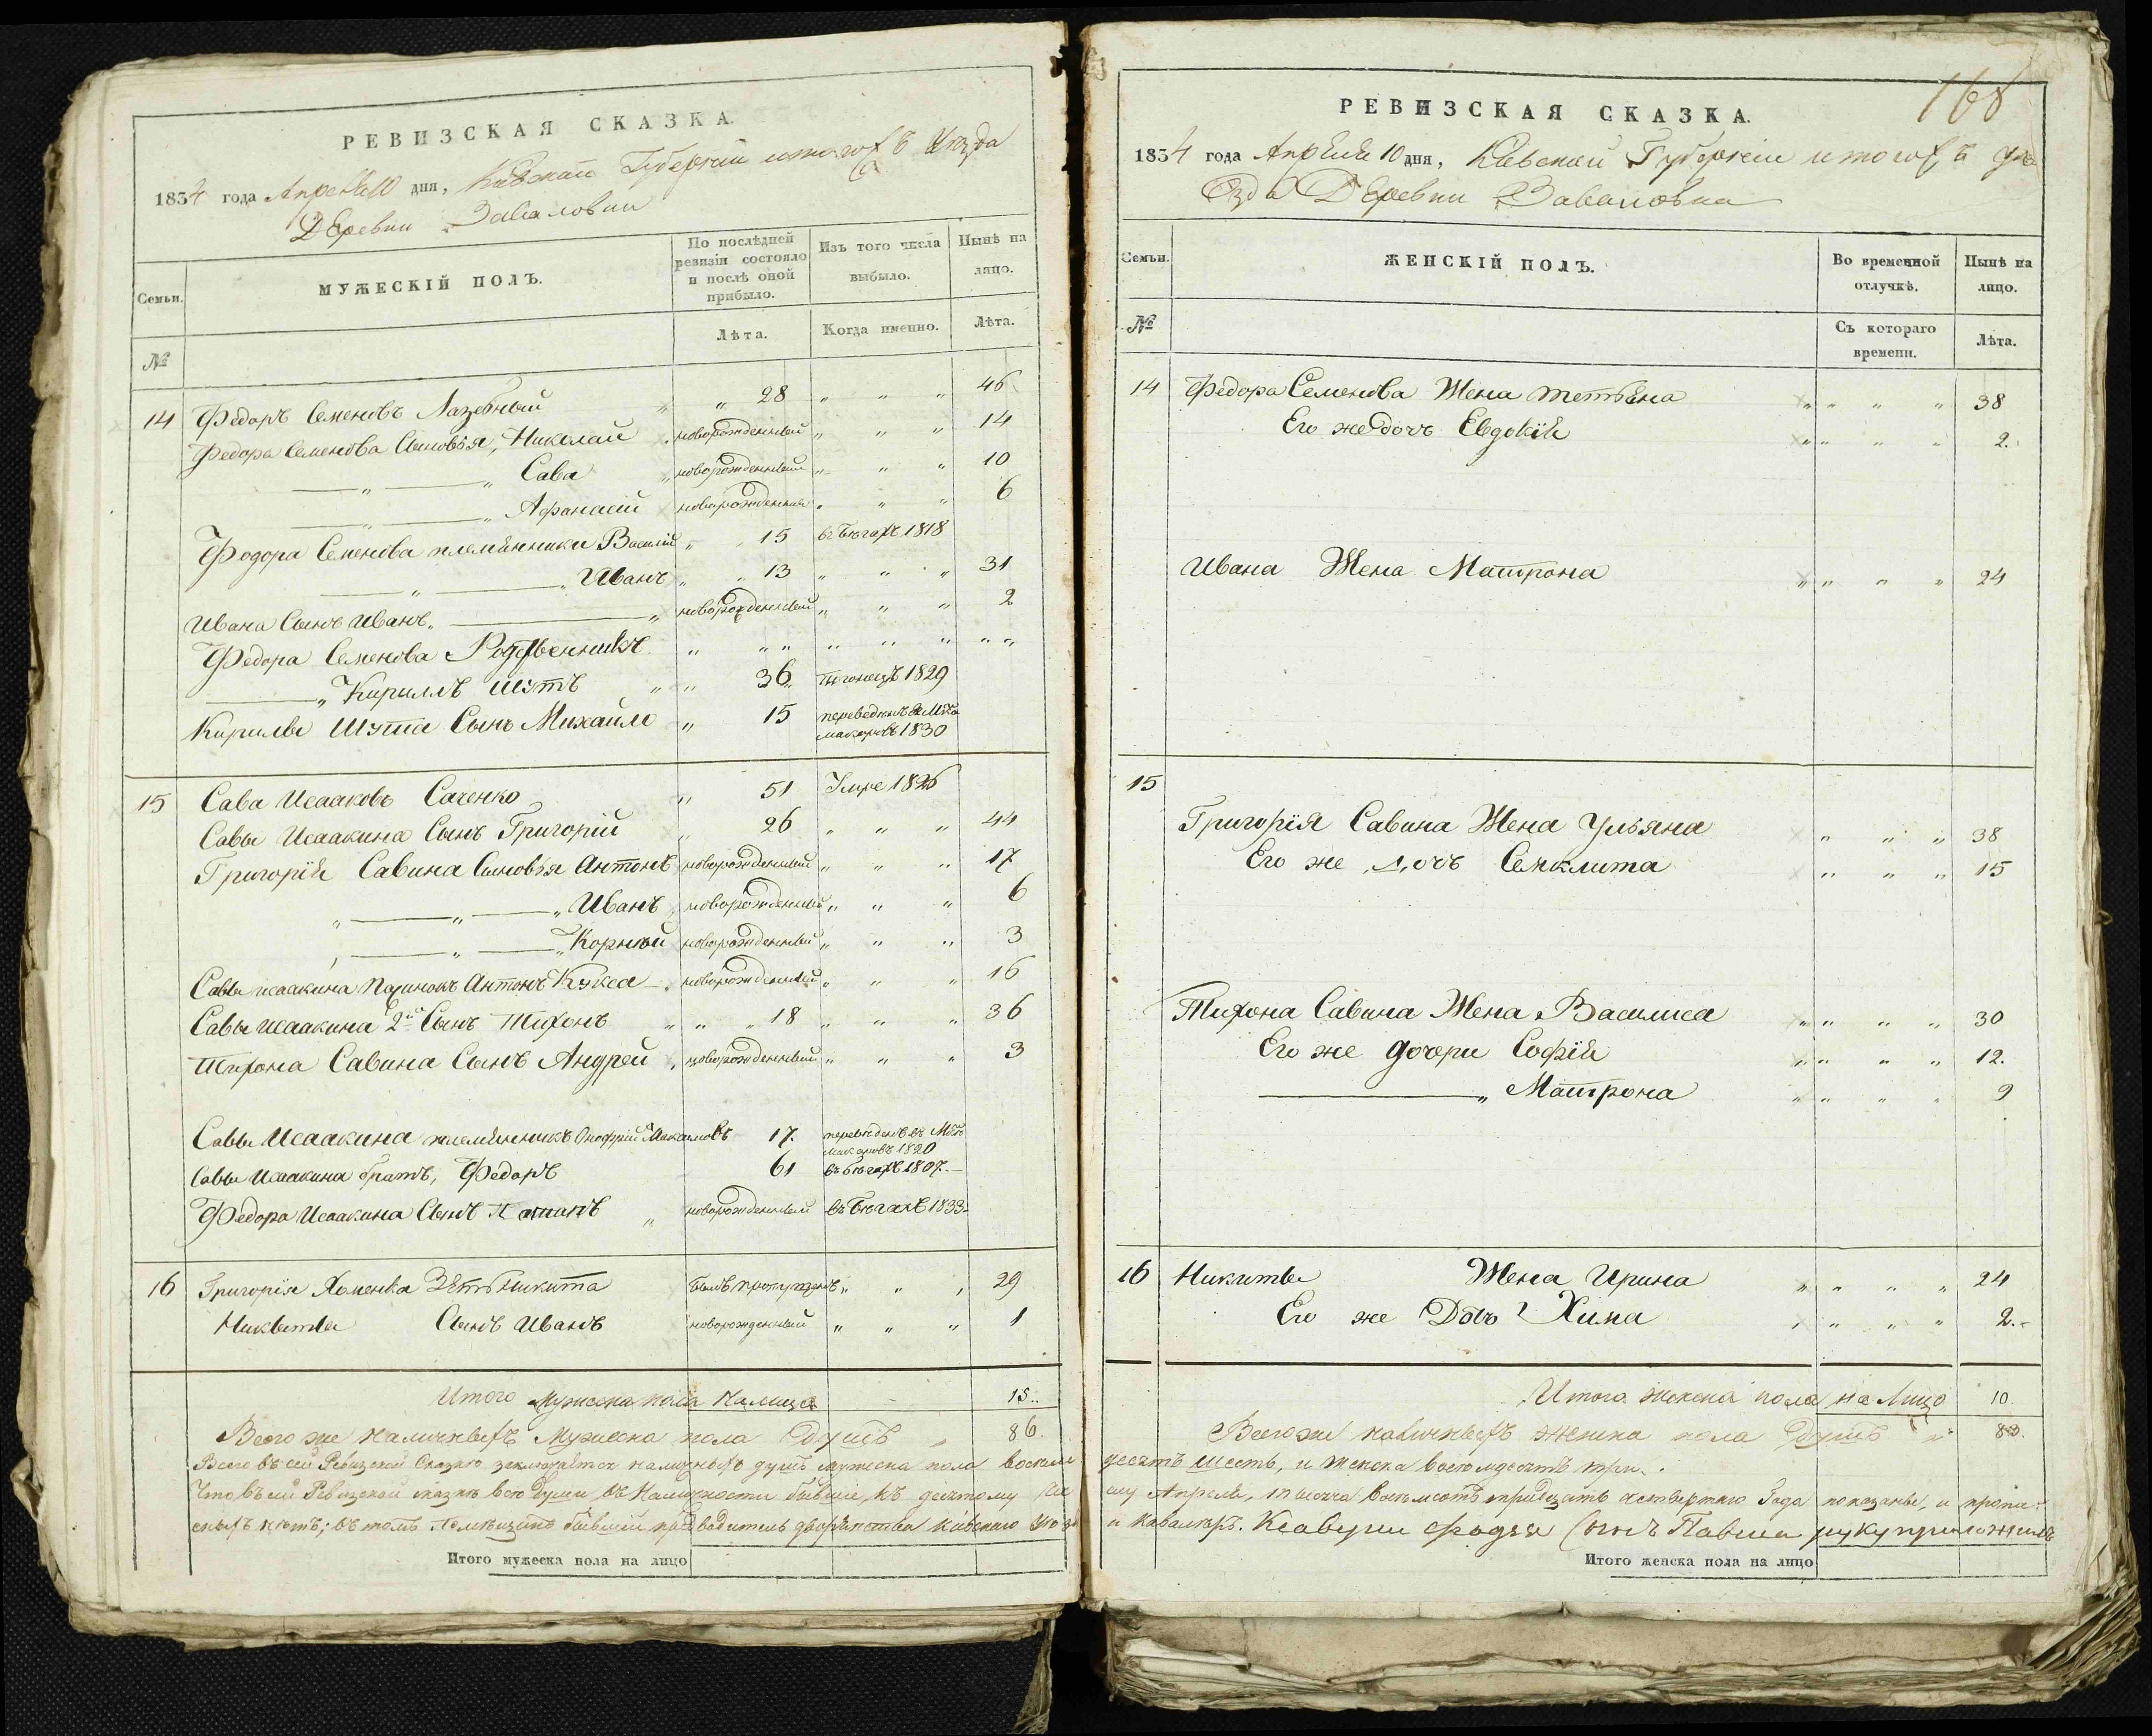 РЕВИЗСКАЯ СКАЗКА.
1834 года Апреля 10 дня, Кіевской Губерніи и тогожъ Уезда
Деревни Заваловки
Семьи.
МУЖЕСКІЙ ПОЛЪ.
По послѣдней ревизіи состояло и послѣ оной прибыло.
Изъ того числа выбыло.
Нынѣ на лицо.
№
Лѣта.
Когда именно.
Лѣта.
14 Федоръ Семеновъ Лазебный " " 28 " " " 46
Федора Семенова Сыновья, Николай новорожденный " " " 14
" " Сава " новорожденный " " " 10
" " Афанасій новорожденный " " " 6
Федора Семенова племянники Василій " " 15 въ бѣгахъ 1818
" " Иванъ " " 13 " " " 31
Ивана Сынъ Иванъ " " новорожденный " " " 2
Федора Семенова Родственникъ " " " " " " " "
" Кириллъ Шутъ " " 36 1829
Кирилы Шута Сынъ Михайло " 15 1830
15 Сава Исааковъ Саченко " 51 Умре 1826
Савы Исаакина Сынъ Григорій " 26 " " " 44
Григорій Савина Сыновья Антонъ новорожденный " " " 17
" " " Иванъ новорожденный " " " 6
" " " Корней новорожденный " " " 3
Савы Исаакина Антонъ Кукса новорожденный " " " 16
Савы Исаакина 2й Сынъ Тихонъ " " " 18 " " " 36
Тихона Савина Сынъ Андрей " новорожденный " " " 3
Савы Исаакина племянникъ Онофрій 17. переведенъ въ 1820
Савы Исаакина братъ, Федоръ 61 въ бѣгахъ 1807.
Федора Исаакина Сынъ " новорожденный въ бѣгахъ 1833
16 Григорія Хоменка Зять Никита " " " 29
Никиты Сынъ Иванъ новорожденный " " " 1
Итого Мужеска пола налицо 15.
Всего же наличныхъ Мужеска пола Душъ " 86.
Всего въ сей Ревизской Сказке заключается наличныхъ душъ мужеска пола восемь
Что въ сей Ревизской сказкѣ все души въ наличности бывшіе, къ десятому
въ томъ бывшій предводитель дворянства Кіевскаго
Итого мужеска пола на лицо
168
РЕВИЗСКАЯ СКАЗКА.
1834 года Апреля 10 дня, Кіевской Губерніи и тогожъ Уе
зда Деревни Заваловка
Семьи.
ЖЕНСКІЙ ПОЛЪ.
Во временной отлучкѣ.
Нынѣ на лицо.
№
Съ котораго времени.
Лѣта.
14 Федора Семенова Жена Тетьяна " " " " 38
Его же дочь Евдокія " " " " 2.
Ивана Жена Матрона " " " " 24
15
Григорія Савина Жена Ульяна " " " 38
Его же дочъ Семклита " " " 15
Тихона Савина Жена Василиса " " " " 30
Его же дочери Софія " " " " 12.
" Матрона " " " " 9
16 Никиты Жена Ирина " " " " 24
Его же Дочъ Хима " " " " 2.
Итого женска пола на Лицо 10.
Всего же наличныхъ Женска пола Душъ " 83.
десятъ шесть, и женска восемдесятъ три.
му Апреля, тысяча восемсотъ тридцать четвертаго Года показаны, и
и Кавалеръ. сынъ Павша руку приложилъ
Итого женска пола на лицо